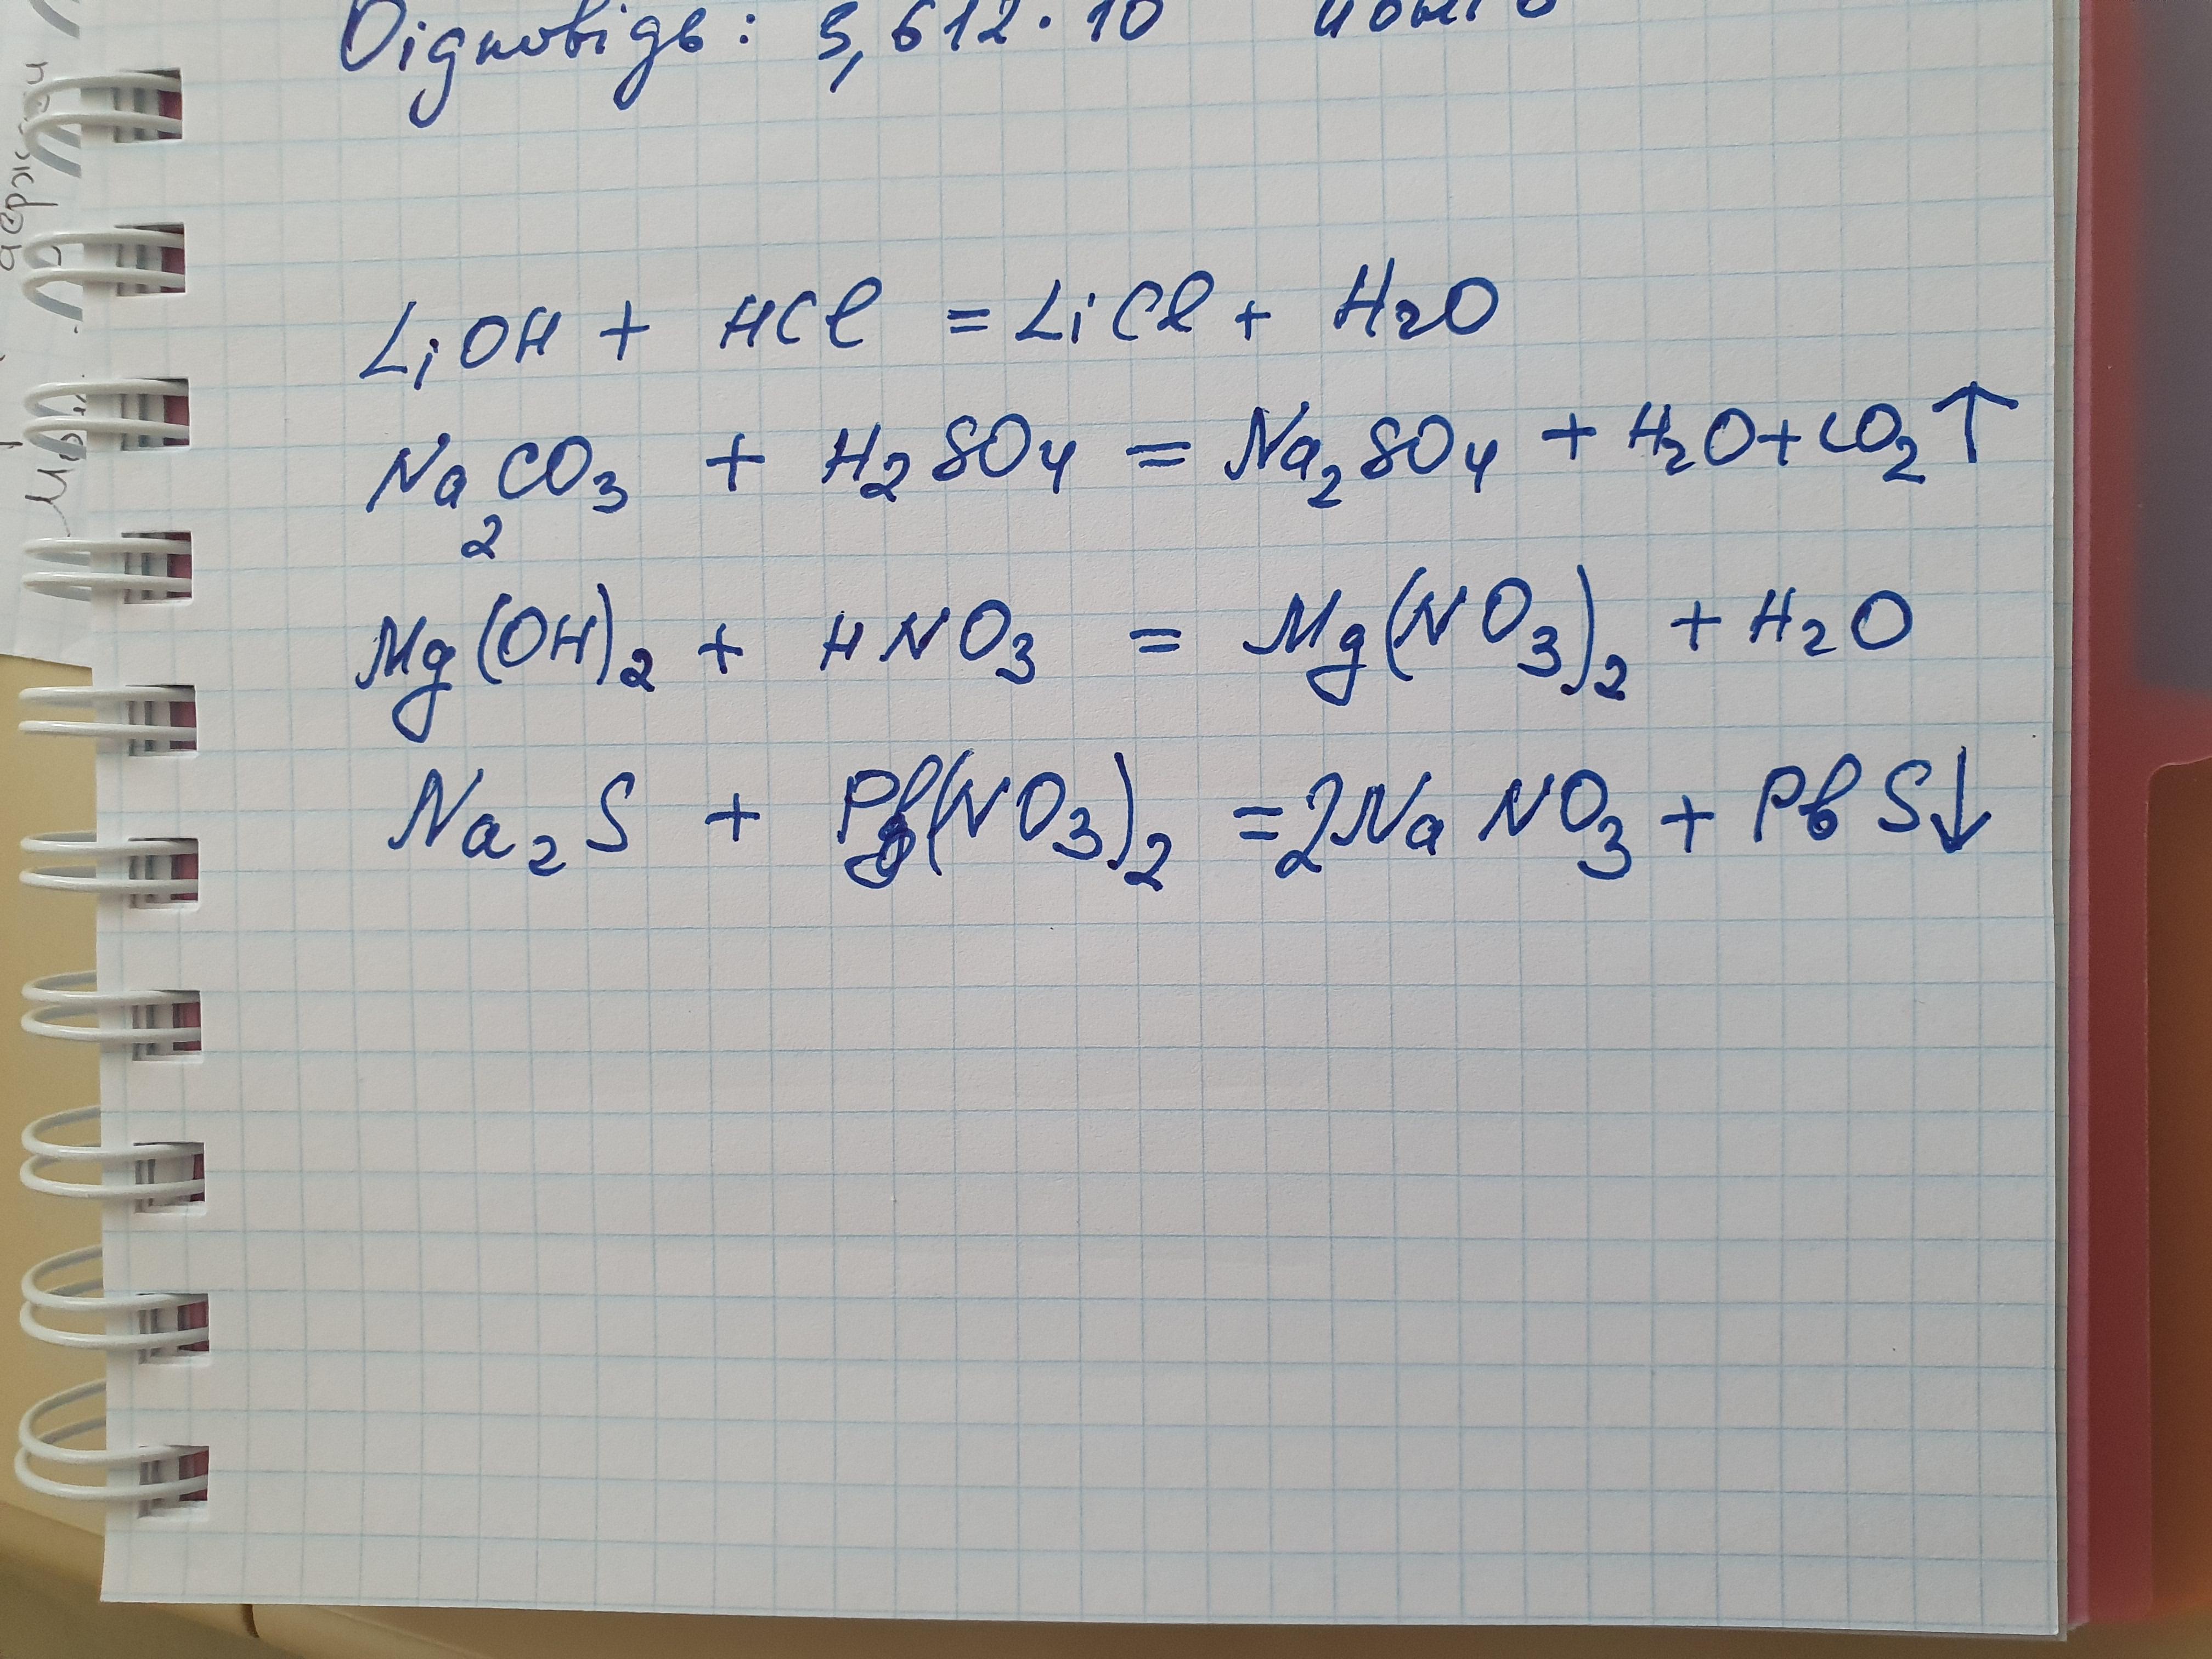 Відповідь: 5,612·10
LiOH + HCl = LiCl + H₂O
Na₂CO₃ + H₂SO₄ = Na₂SO₄ + H₂O + CO₂↑
Mg(OH)₂ + HNO₃ = Mg(NO₃)₂ + H₂O
Na₂S + Pb(NO₃)₂ = 2NaNO₃ + PbS↓